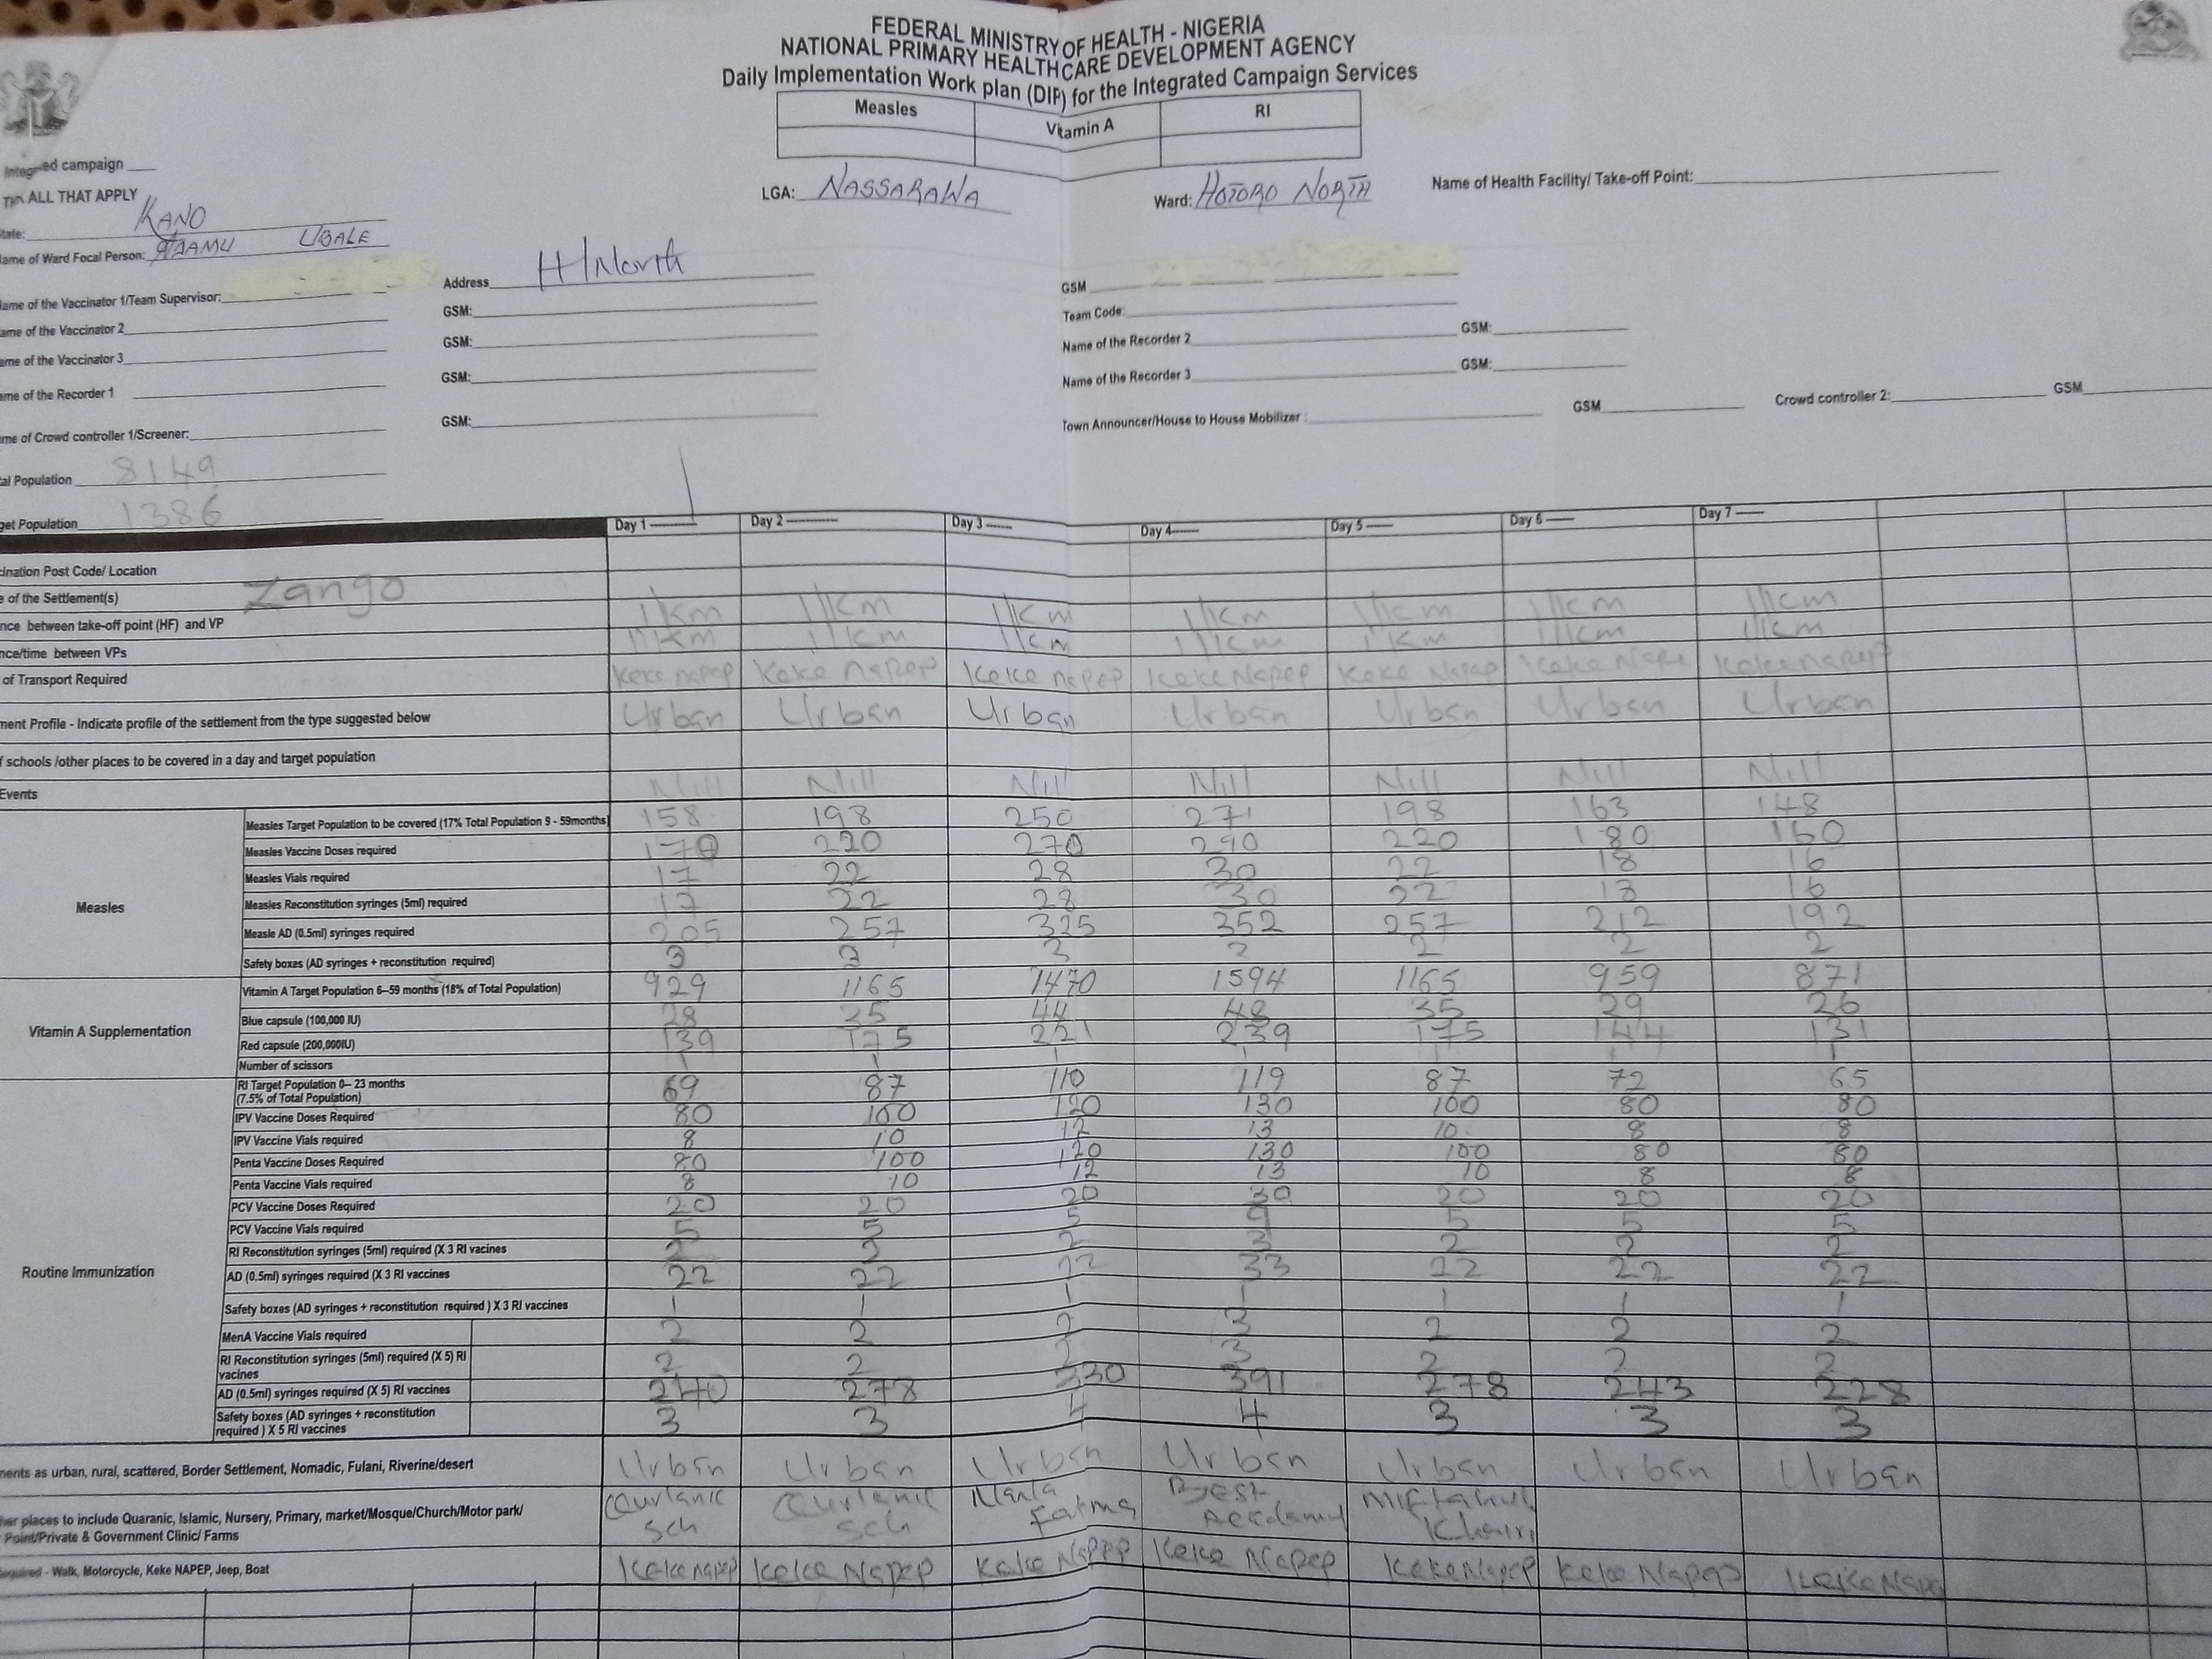 FEDERAL MINISTRY OF HEALTH - NIGERIA
NATIONAL PRIMARY HEALTHCARE DEVELOPMENT AGENCY
Daily Implementation Work plan (DIP) for the Integrated Campaign Services
Measles Vitamin A RI
campaign
ALL THAT APPLY
LGA: NASSARAWA Ward: HOTORO NORTH Name of Health Facility/ Take-off Point:
State: KANO
Name of Ward Focal Person: ADAMU UBALE
Address H/North GSM
Name of the Vaccinator 1/Team Supervisor: GSM: Team Code:
Name of the Vaccinator 2 GSM: Name of the Recorder 2 GSM:
Name of the Vaccinator 3 GSM: Name of the Recorder 3 GSM:
Name of the Recorder 1 GSM: Town Announcer/House to House Mobilizer : GSM Crowd controller 2: GSM
me of Crowd controller 1/Screener:
al Population 8149
get Population 1386
Day 1 Day 2 Day 3 Day 4 Day 5 Day 6 Day 7
cination Post Code/ Location
e of the Settlement(s) Zango
nce between take-off point (HF) and VP 1km 1km 1km 1km 1km 1km 1km
nce/time between VPs 1km 1km 1km 1km 1km 1km 1km
of Transport Required Keke napep Keke Napep Keke napep Keke Napep Keke Napep Keke Nape Keke napep
ment Profile - Indicate profile of the settlement from the type suggested below Urban Urban Urban Urban Urban Urban Urban
f schools /other places to be covered in a day and target population
Events Nill Nill Nill Nill Nill Nill Nill
Measles
Measles Target Population to be covered (17% Total Population 9 - 59months) 158 198 250 271 198 163 148
Measles Vaccine Doses required 170 220 270 290 220 180 160
Measles Vials required 17 22 28 30 22 18 16
Measles Reconstitution syringes (5ml) required 17 22 28 30 22 18 16
Measle AD (0.5ml) syringes required 205 257 325 352 257 212 192
Safety boxes (AD syringes + reconstitution required) 3 3 3 2 2 2 2
Vitamin A Supplementation
Vitamin A Target Population 6–59 months (18% of Total Population) 929 1165 1470 1594 1165 959 871
Blue capsule (100,000 IU) 28 35 44 48 35 29 26
Red capsule (200,000IU) 139 175 221 239 175 144 131
Number of scissors 1 1 1 1 1 1
Routine Immunization
RI Target Population 0– 23 months
(7.5% of Total Population) 69 87 110 119 87 72 65
IPV Vaccine Doses Required 80 100 120 130 100 80 80
IPV Vaccine Vials required 8 10 12 13 10 8 8
Penta Vaccine Doses Required 80 100 120 130 100 80 80
Penta Vaccine Vials required 8 10 12 13 10 8 8
PCV Vaccine Doses Required 20 20 20 30 20 20 20
PCV Vaccine Vials required 5 5 5 5 5 5
RI Reconstitution syringes (5ml) required (X 3 RI vacines 2 2 2 3 2 2 2
AD (0.5ml) syringes required (X 3 RI vaccines 22 22 22 33 22 22 22
Safety boxes (AD syringes + reconstitution required ) X 3 RI vaccines 1 1 1 1 1 1 1
MenA Vaccine Vials required 2 2 2 3 2 2 2
RI Reconstitution syringes (5ml) required (X 5) RI
vacines 2 2 2 3 2 2 2
AD (0.5ml) syringes required (X 5) RI vaccines 240 278 330 391 278 243 228
Safety boxes (AD syringes + reconstitution
required ) X 5 RI vaccines 3 3 4 4 3 3 3
ments as urban, rural, scattered, Border Settlement, Nomadic, Fulani, Riverine/desert Urban Urban Urban Urban Urban Urban Urban
her places to include Quaranic, Islamic, Nursery, Primary, market/Mosque/Church/Motor park/
Point/Private & Government Clinic/ Farms Qurlanic Sch Qurlanic Sch Fatima Best Accdamy Miftahul Khairi
equired - Walk, Motorcycle, Keke NAPEP, Jeep, Boat Keke napep Keke Napep Keke Napep Keke Napep Keke Napep Keke Napep Keke Napep